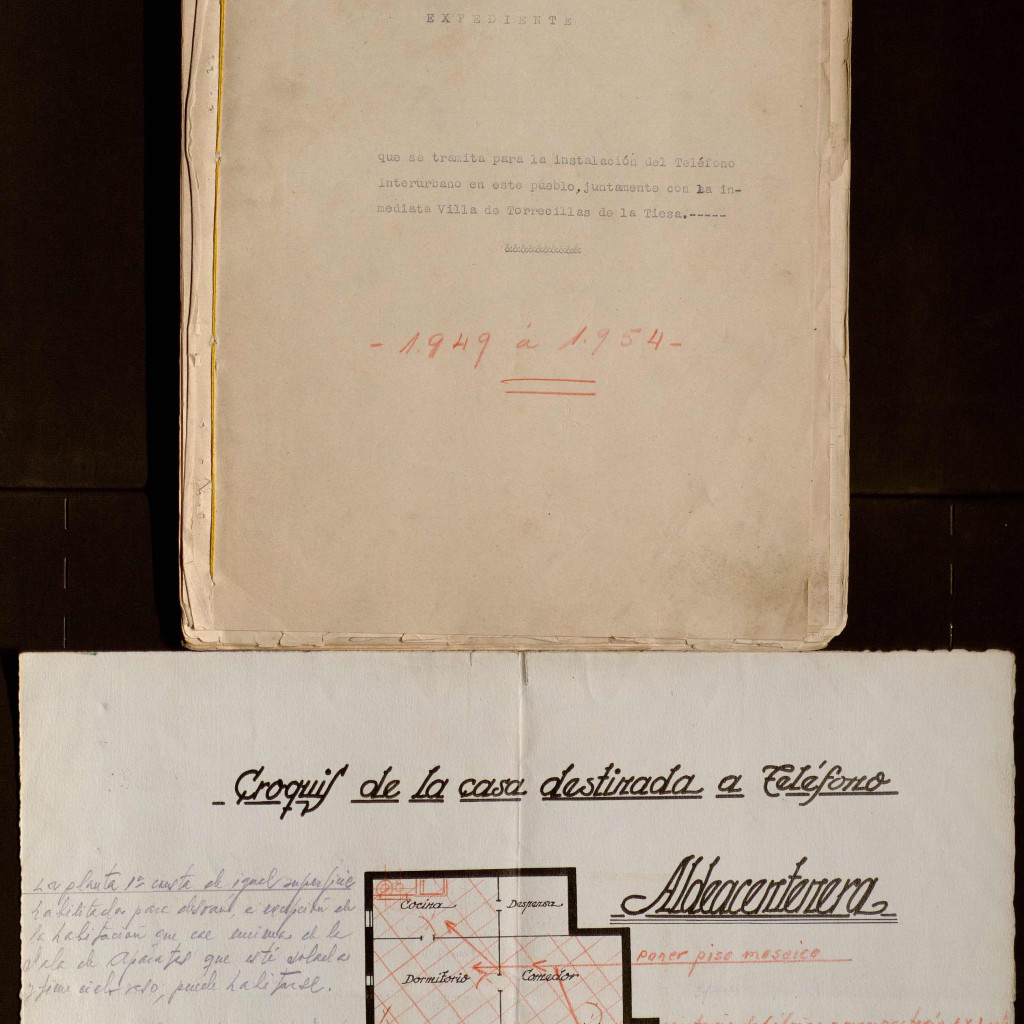 EXPEDIENTE
que se tramita para la instalación del Teléfono
Interurbano en este pueblo,juntamente con la in-
mediata Villa de Torrecillas de la Tiesa.-----
&&&&&&&&&&
- 1.949 á 1.954 -
- Croquis de la casa destinada a Teléfono
Aldeacentenera
La planta 1ª consta de igual superficie
habilitada para desvan, a excepción de
la habitación que cae encima de la
Sala de Aparatos que está solada
y tiene cielo raso, puede habitarse.
Cocina
Despensa
poner piso mosaico
Dormitorio
Comedor